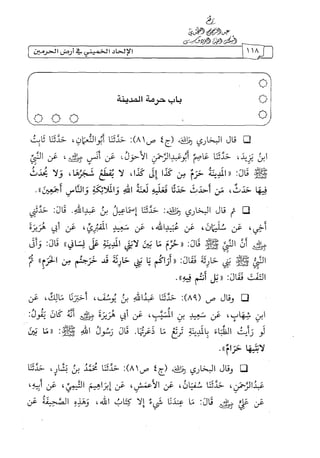 ١١٨
الإلحاد الخميني في أرض الحرمين
باب حرمة المدينة
قال البخاري رحمه الله (ج٤ ص٨١): حَدَّثَنَا أَبُو النُّعْمَانِ، حَدَّثَنَا ثَابِتُ
ابْنُ يَزِيدَ، حَدَّثَنَا عَاصِمٌ أَبُو عَبْدِ الرَّحْمَنِ الأَحْوَلُ، عَنْ أَنَسٍ رضي الله عنه، عَنِ النَّبِيِّ
ﷺ قَالَ: «المَدِينَةُ حَرَمٌ مِنْ كَذَا إِلَى كَذَا، لَا يُقْطَعُ شَجَرُهَا، وَلَا يُحْدَثُ
فِيهَا حَدَثٌ، مَنْ أَحْدَثَ حَدَثًا فَعَلَيْهِ لَعْنَةُ اللهِ وَالْمَلَائِكَةِ وَالنَّاسِ أَجْمَعِينَ».
ثم قال البخاري رحمه الله: حَدَّثَنَا إِسْمَاعِيلُ بْنُ عَبْدِ اللهِ. قَالَ: حَدَّثَنِي
أَخِي، عَنْ سُلَيْمَانَ، عَنْ عُبَيْدِ اللهِ، عَنْ سَعِيدٍ الْمَقْبُرِيِّ، عَنْ أَبِي هُرَيْرَةَ
رضي الله عنه أَنَّ النَّبِيَّ ﷺ قَالَ: «حُرِّمَ مَا بَيْنَ لَابَتَيِ الْمَدِينَةِ عَلَى لِسَانِي» قَالَ: وَأَتَى
النَّبِيُّ ﷺ بَنِي حَارِثَةَ فَقَالَ: «أَرَاكُمْ يَا بَنِي حَارِثَةَ قَدْ خَرَجْتُمْ مِنَ الحَرَمِ» ثُمَّ
التَفَتَ فَقَالَ: «بَلْ أَنْتُمْ فِيهِ».
وقال ص (٨٩): حَدَّثَنَا عَبْدُ اللهِ بْنُ يُوسُفَ، أَخْبَرَنَا مَالِكٌ، عَنِ
ابْنِ شِهَابٍ، عَنْ سَعِيدِ بْنِ الْمُسَيَّبِ، عَنْ أَبِي هُرَيْرَةَ رضي الله عنه أَنَّهُ كَانَ يَقُولُ:
لَوْ رَأَيْتُ الظِّبَاءَ بِالْمَدِينَةِ تَرْتَعُ مَا ذَعَرْتُهَا. قَالَ رَسُولُ اللهِ ﷺ: «مَا بَيْنَ
لَابَتَيْهَا حَرَامٌ».
وقال البخاري رحمه الله (ج٤ ص٨١): حَدَّثَنَا مُحَمَّدُ بْنُ بَشَّارٍ، حَدَّثَنَا
عَبْدُ الرَّحْمَنِ، حَدَّثَنَا سُفْيَانُ، عَنِ الأَعْمَشِ، عَنْ إِبْرَاهِيمَ التَّيْمِيِّ، عَنْ أَبِيهِ،
عَنْ عَلِيٍّ رضي الله عنه قَالَ: مَا عِنْدَنَا شَيْءٌ إِلَّا كِتَابُ اللهِ، وَهَذِهِ الصَّحِيفَةُ عَنِ